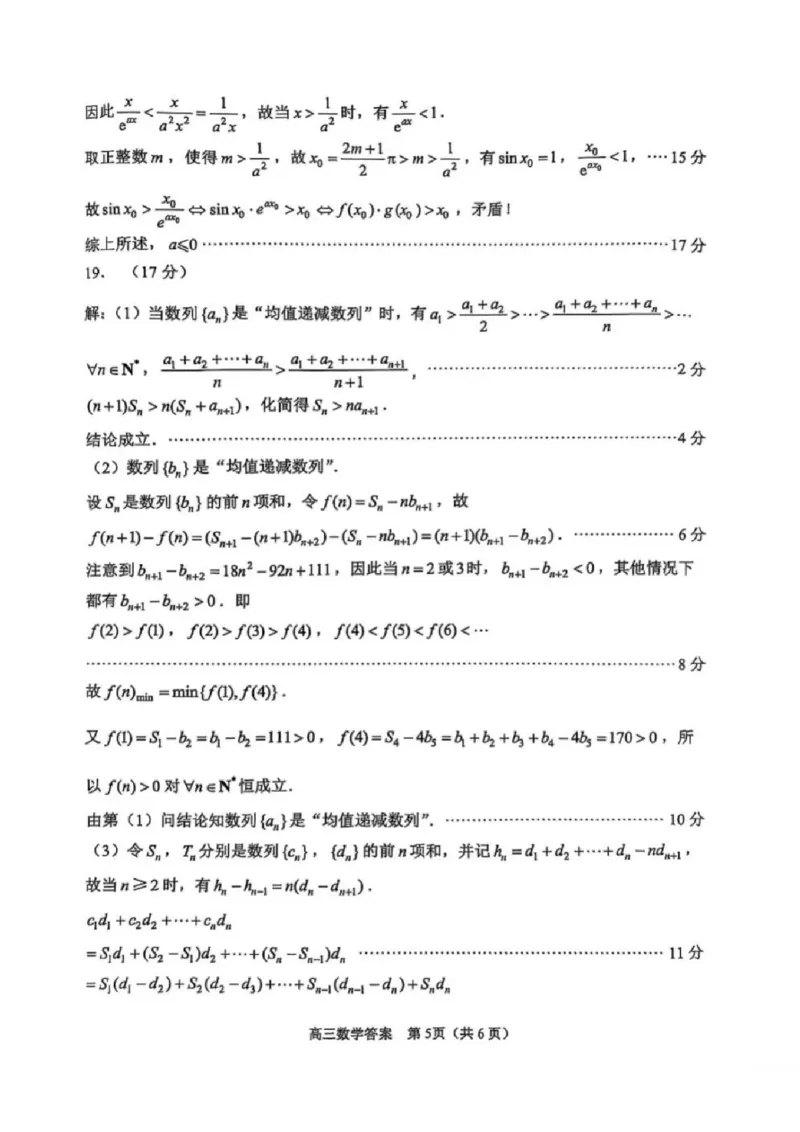 因此 $\frac{x}{e^{ax}}<\frac{x}{a^2x^2}=\frac{1}{a^2x}$，故当 $x>\frac{1}{a^2}$ 时，有 $\frac{x}{e^{ax}}<1$．
取正整数 $m$，使得 $m>\frac{1}{a^2}$，故 $x_0=\frac{2m+1}{2}\pi>m>\frac{1}{a^2}$，有 $\sin x_0=1$，$\frac{x_0}{e^{ax_0}}<1$，····15 分
故 $\sin x_0>\frac{x_0}{e^{ax_0}}\Leftrightarrow \sin x_0\cdot e^{ax_0}>x_0\Leftrightarrow f(x_0)\cdot g(x_0)>x_0$，矛盾！
综上所述，$a\leqslant 0$ ················17 分
19．（17 分）
解：（1）当数列 $\{a_n\}$ 是“均值递减数列”时，有 $a_1>\frac{a_1+a_2}{2}>\cdots>\frac{a_1+a_2+\cdots+a_n}{n}>\cdots$
$\forall n\in \mathbf{N}^*$，$\frac{a_1+a_2+\cdots+a_n}{n}>\frac{a_1+a_2+\cdots+a_{n+1}}{n+1}$，················2 分
$(n+1)S_n>n(S_n+a_{n+1})$，化简得 $S_n>na_{n+1}$．
结论成立．················4 分
（2）数列 $\{b_n\}$ 是“均值递减数列”．
设 $S_n$ 是数列 $\{b_n\}$ 的前 $n$ 项和，令 $f(n)=S_n-nb_{n+1}$，故
$f(n+1)-f(n)=(S_{n+1}-(n+1)b_{n+2})-(S_n-nb_{n+1})=(n+1)(b_{n+1}-b_{n+2})$．················6 分
注意到 $b_{n+1}-b_{n+2}=18n^2-92n+111$，因此当 $n=2$ 或 $3$ 时，$b_{n+1}-b_{n+2}<0$，其他情况下
都有 $b_{n+1}-b_{n+2}>0$．即
$f(2)>f(1)$，$f(2)>f(3)>f(4)$，$f(4)<f(5)<f(6)<\cdots$
················8 分
故 $f(n)_{\min}=\min\{f(1),f(4)\}$．
又 $f(1)=S_1-b_2=b_1-b_2=111>0$，$f(4)=S_4-4b_5=b_1+b_2+b_3+b_4-4b_5=170>0$，所
以 $f(n)>0$ 对 $\forall n\in \mathbf{N}^*$ 恒成立．
由第（1）问结论知数列 $\{a_n\}$ 是“均值递减数列”．················10 分
（3）令 $S_n$，$T_n$ 分别是数列 $\{c_n\}$，$\{d_n\}$ 的前 $n$ 项和，并记 $h_n=d_1+d_2+\cdots+d_n-nd_{n+1}$，
故当 $n\geqslant 2$ 时，有 $h_n-h_{n-1}=n(d_n-d_{n+1})$．
$c_1d_1+c_2d_2+\cdots+c_nd_n$
$=S_1d_1+(S_2-S_1)d_2+\cdots+(S_n-S_{n-1})d_n$ ················11 分
$=S_1(d_1-d_2)+S_2(d_2-d_3)+\cdots+S_{n-1}(d_{n-1}-d_n)+S_nd_n$
高三数学答案 第 5页（共 6 页）